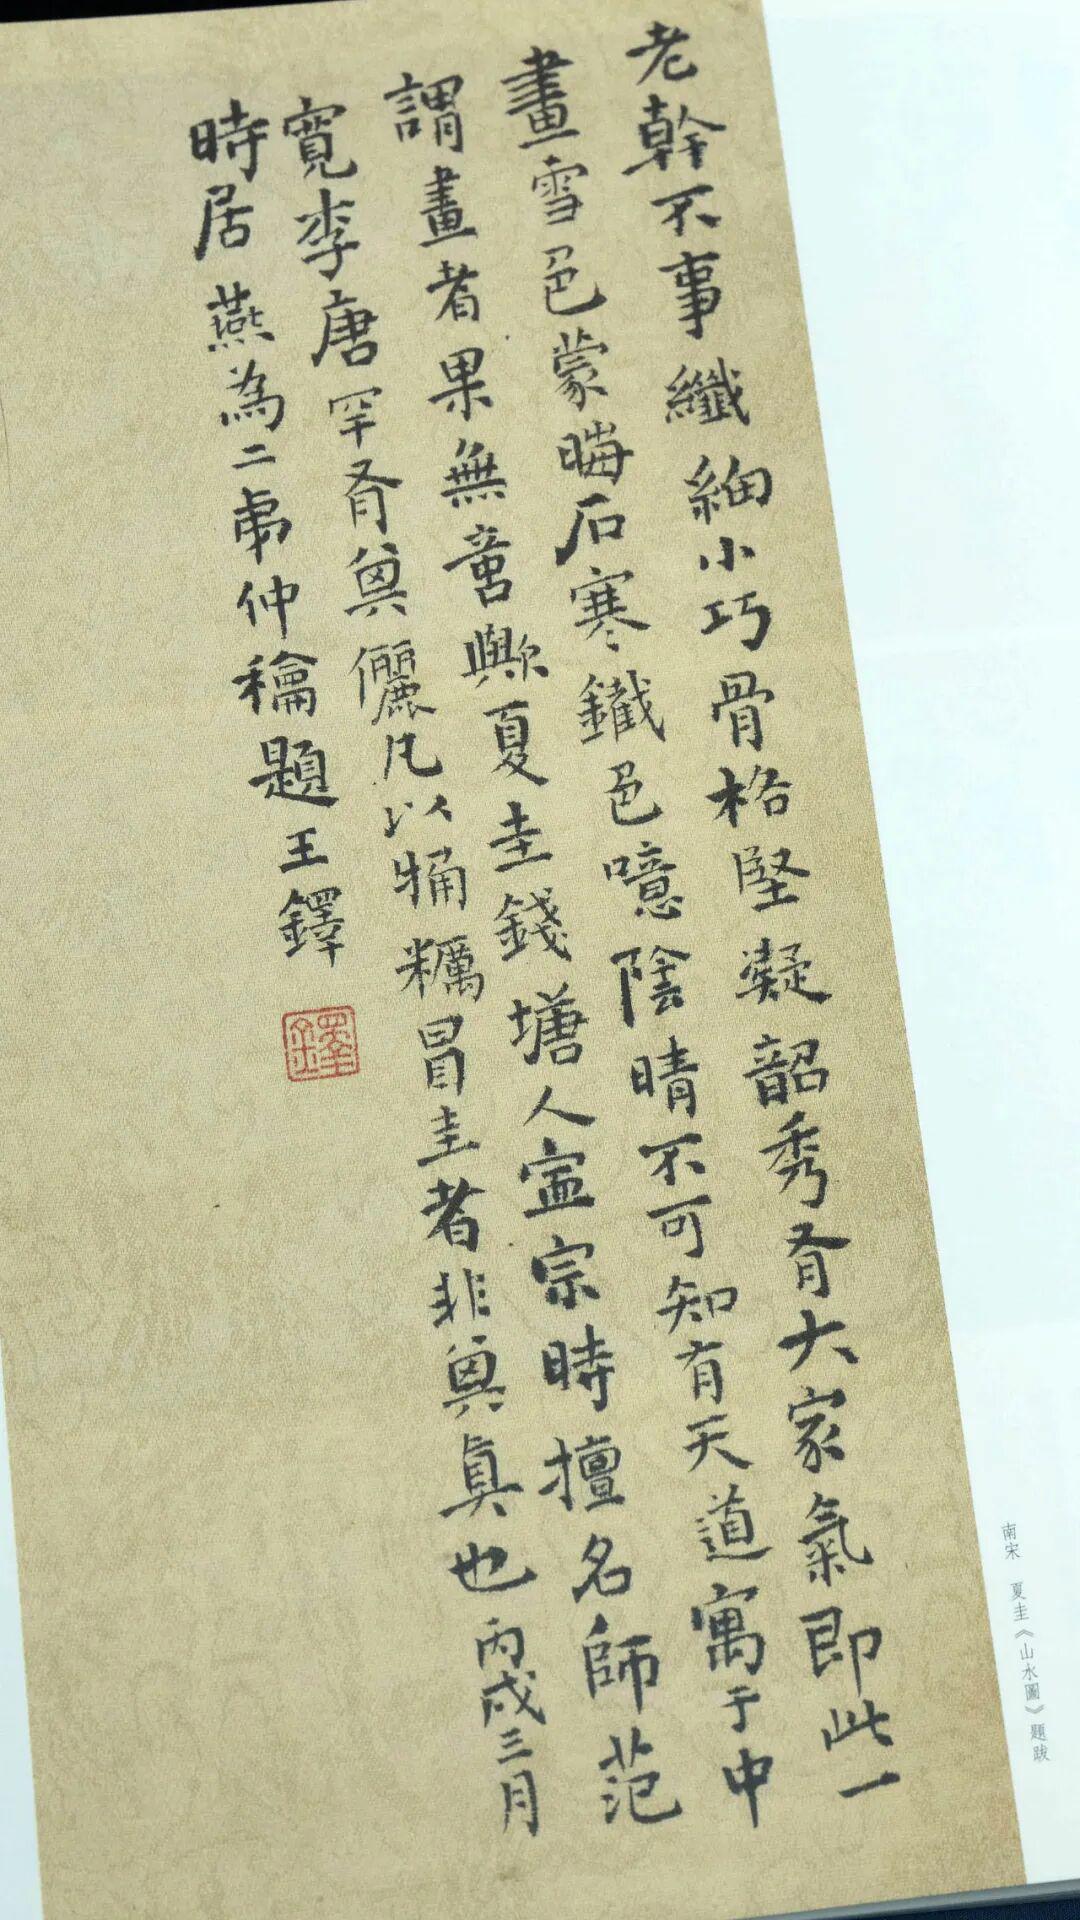 老幹不事纖細小巧骨格堅凝韶秀有大家氣即此一
畫雪色蒙晦石寒鐵色噫陰晴不可知有天道寓于中
謂畫者果無啻歟夏圭錢塘人寧宗時擅名師范
寬李唐罕有其儷凡以粗糲冒圭者非其真也丙戌三月
時居燕為二弟仲龢題王鐸
鐸
南宋 夏圭《山水圖》題跋